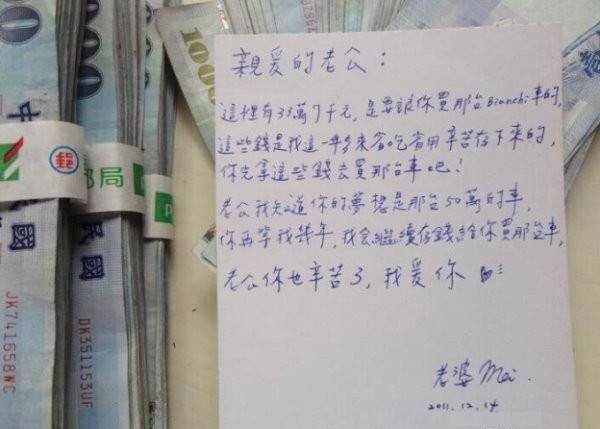 親爱的老公：
這裡有33萬7千元，是要讓你買那台Bianchi車的，
這些錢是我這一年多來省吃省用辛苦存下來的，
你先拿這些錢去買那台車吧！
老公我知道你的夢想是那台50萬的車，
你再等我幾年，我会繼續存錢給你買那台車，
老公你也辛苦了，我爱你
老婆Mei.
2011.12.14
1000
000
中
民國
郵
郵局
JK741658WC
DK351153UF